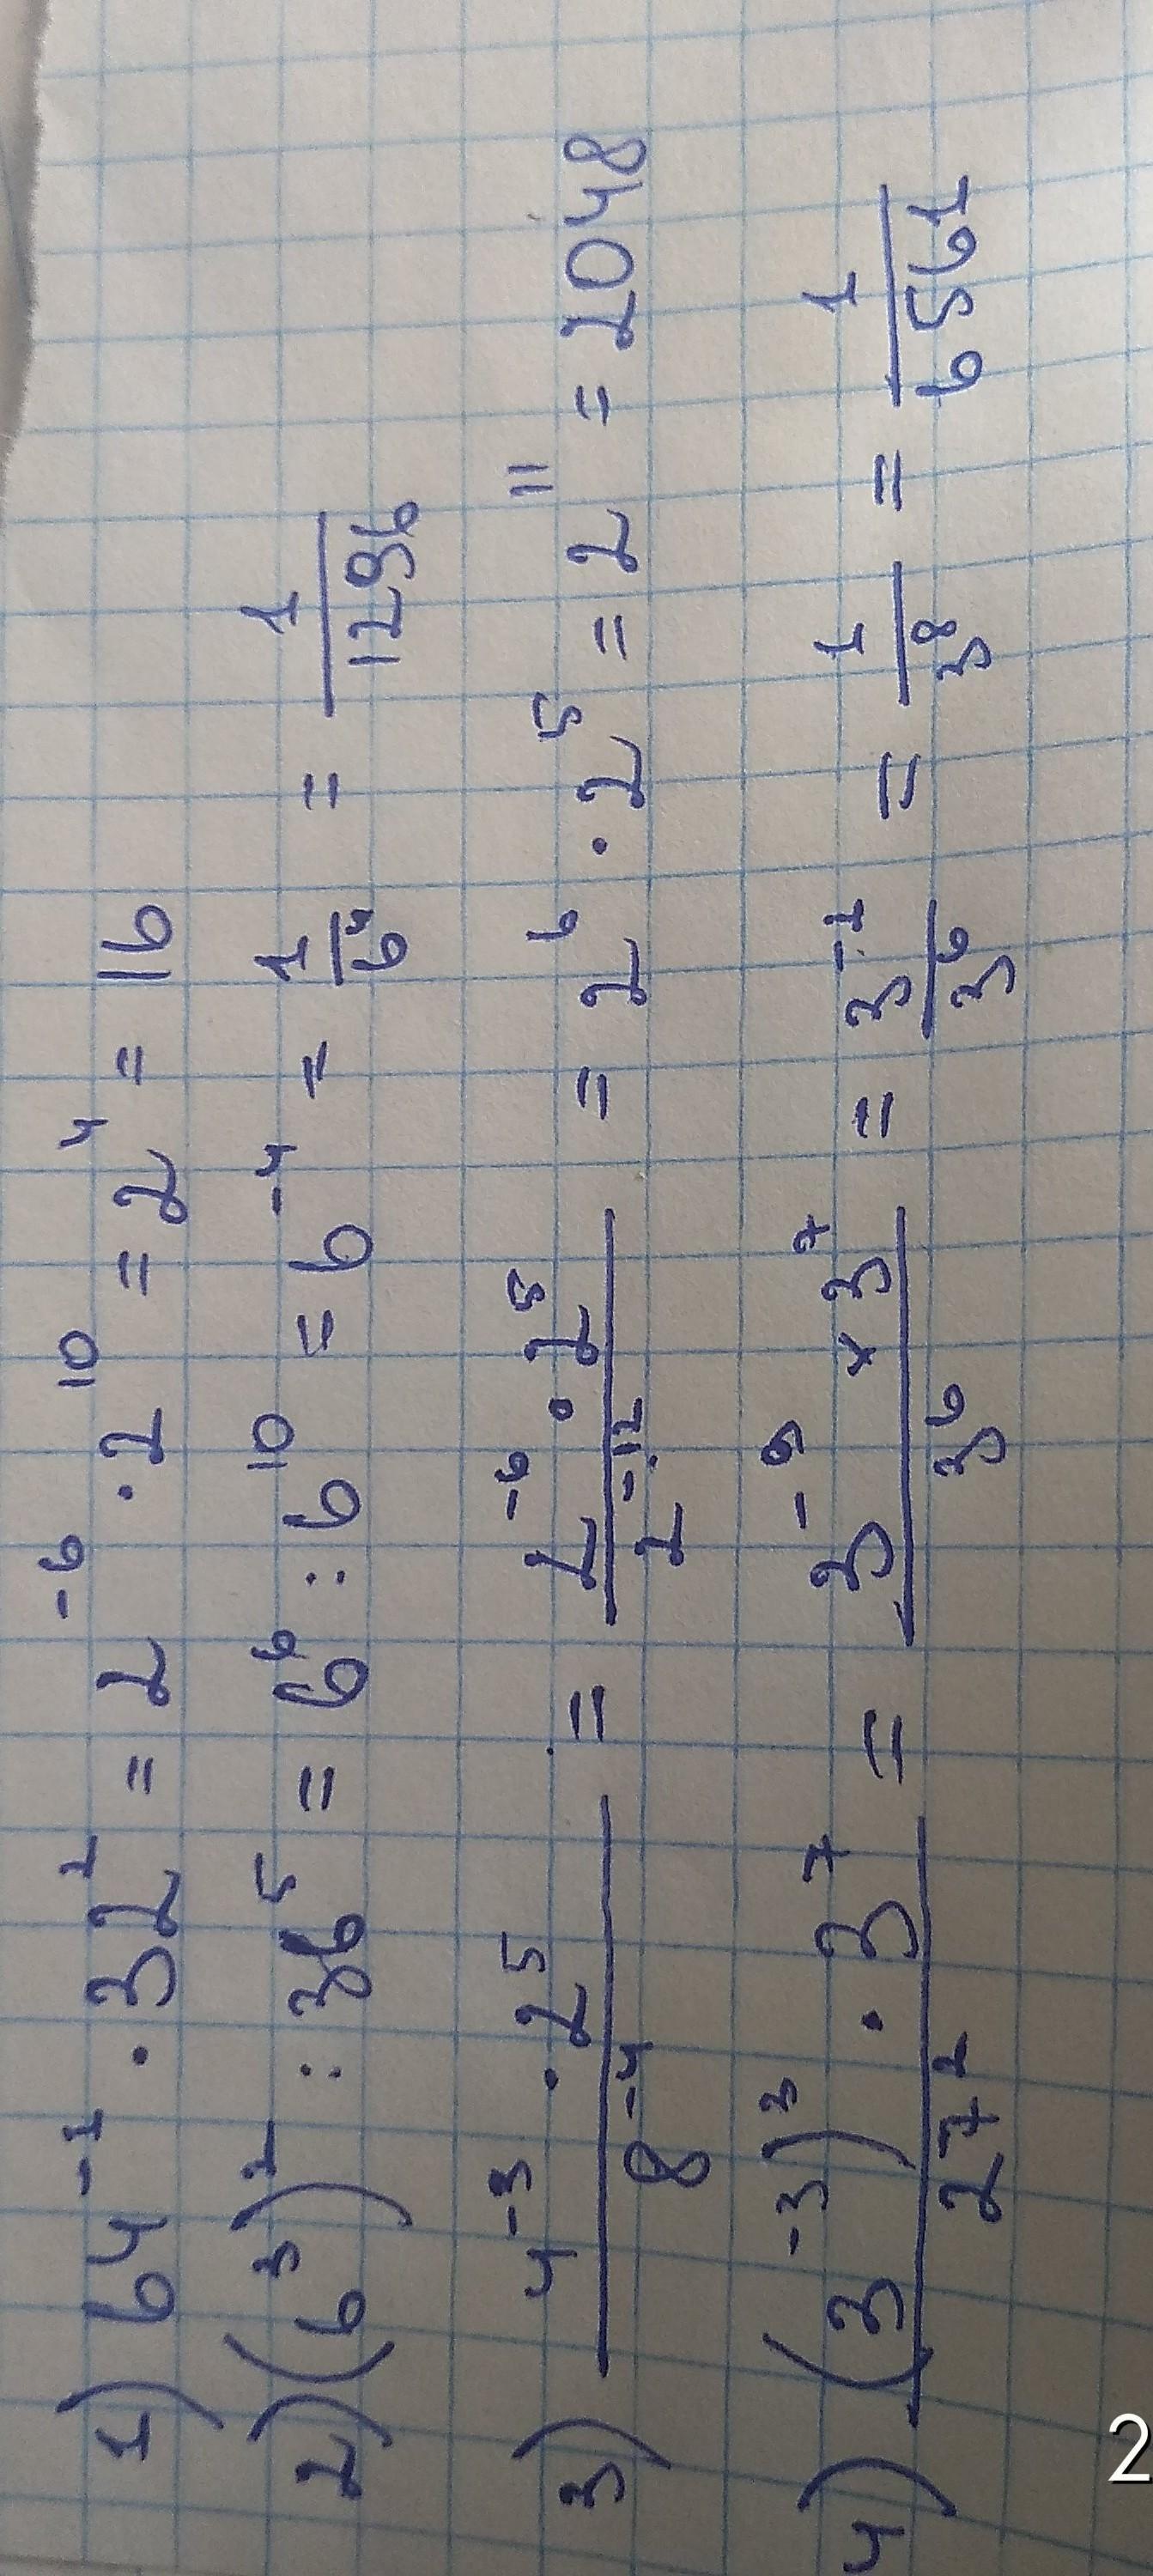 1) 64⁻¹ · 32² = 2⁻⁶ · 2¹⁰ = 2⁴ = 16
2) (6³)² : 36⁵ = 6⁶ : 6¹⁰ = 6⁻⁴ = 1/6⁴ = 1/1296
3) 4⁻³ · 2⁵ / 8⁻⁴ = 2⁻⁶ · 2⁵ / 2⁻¹² = 2⁶ · 2⁵ = 2¹¹ = 2048
4) (3⁻³)³ · 3⁷ / 27² = 3⁻⁹ × 3⁷ / 3⁶ = 3⁻¹/3⁶ = 1/3⁸ = 1/6561
2